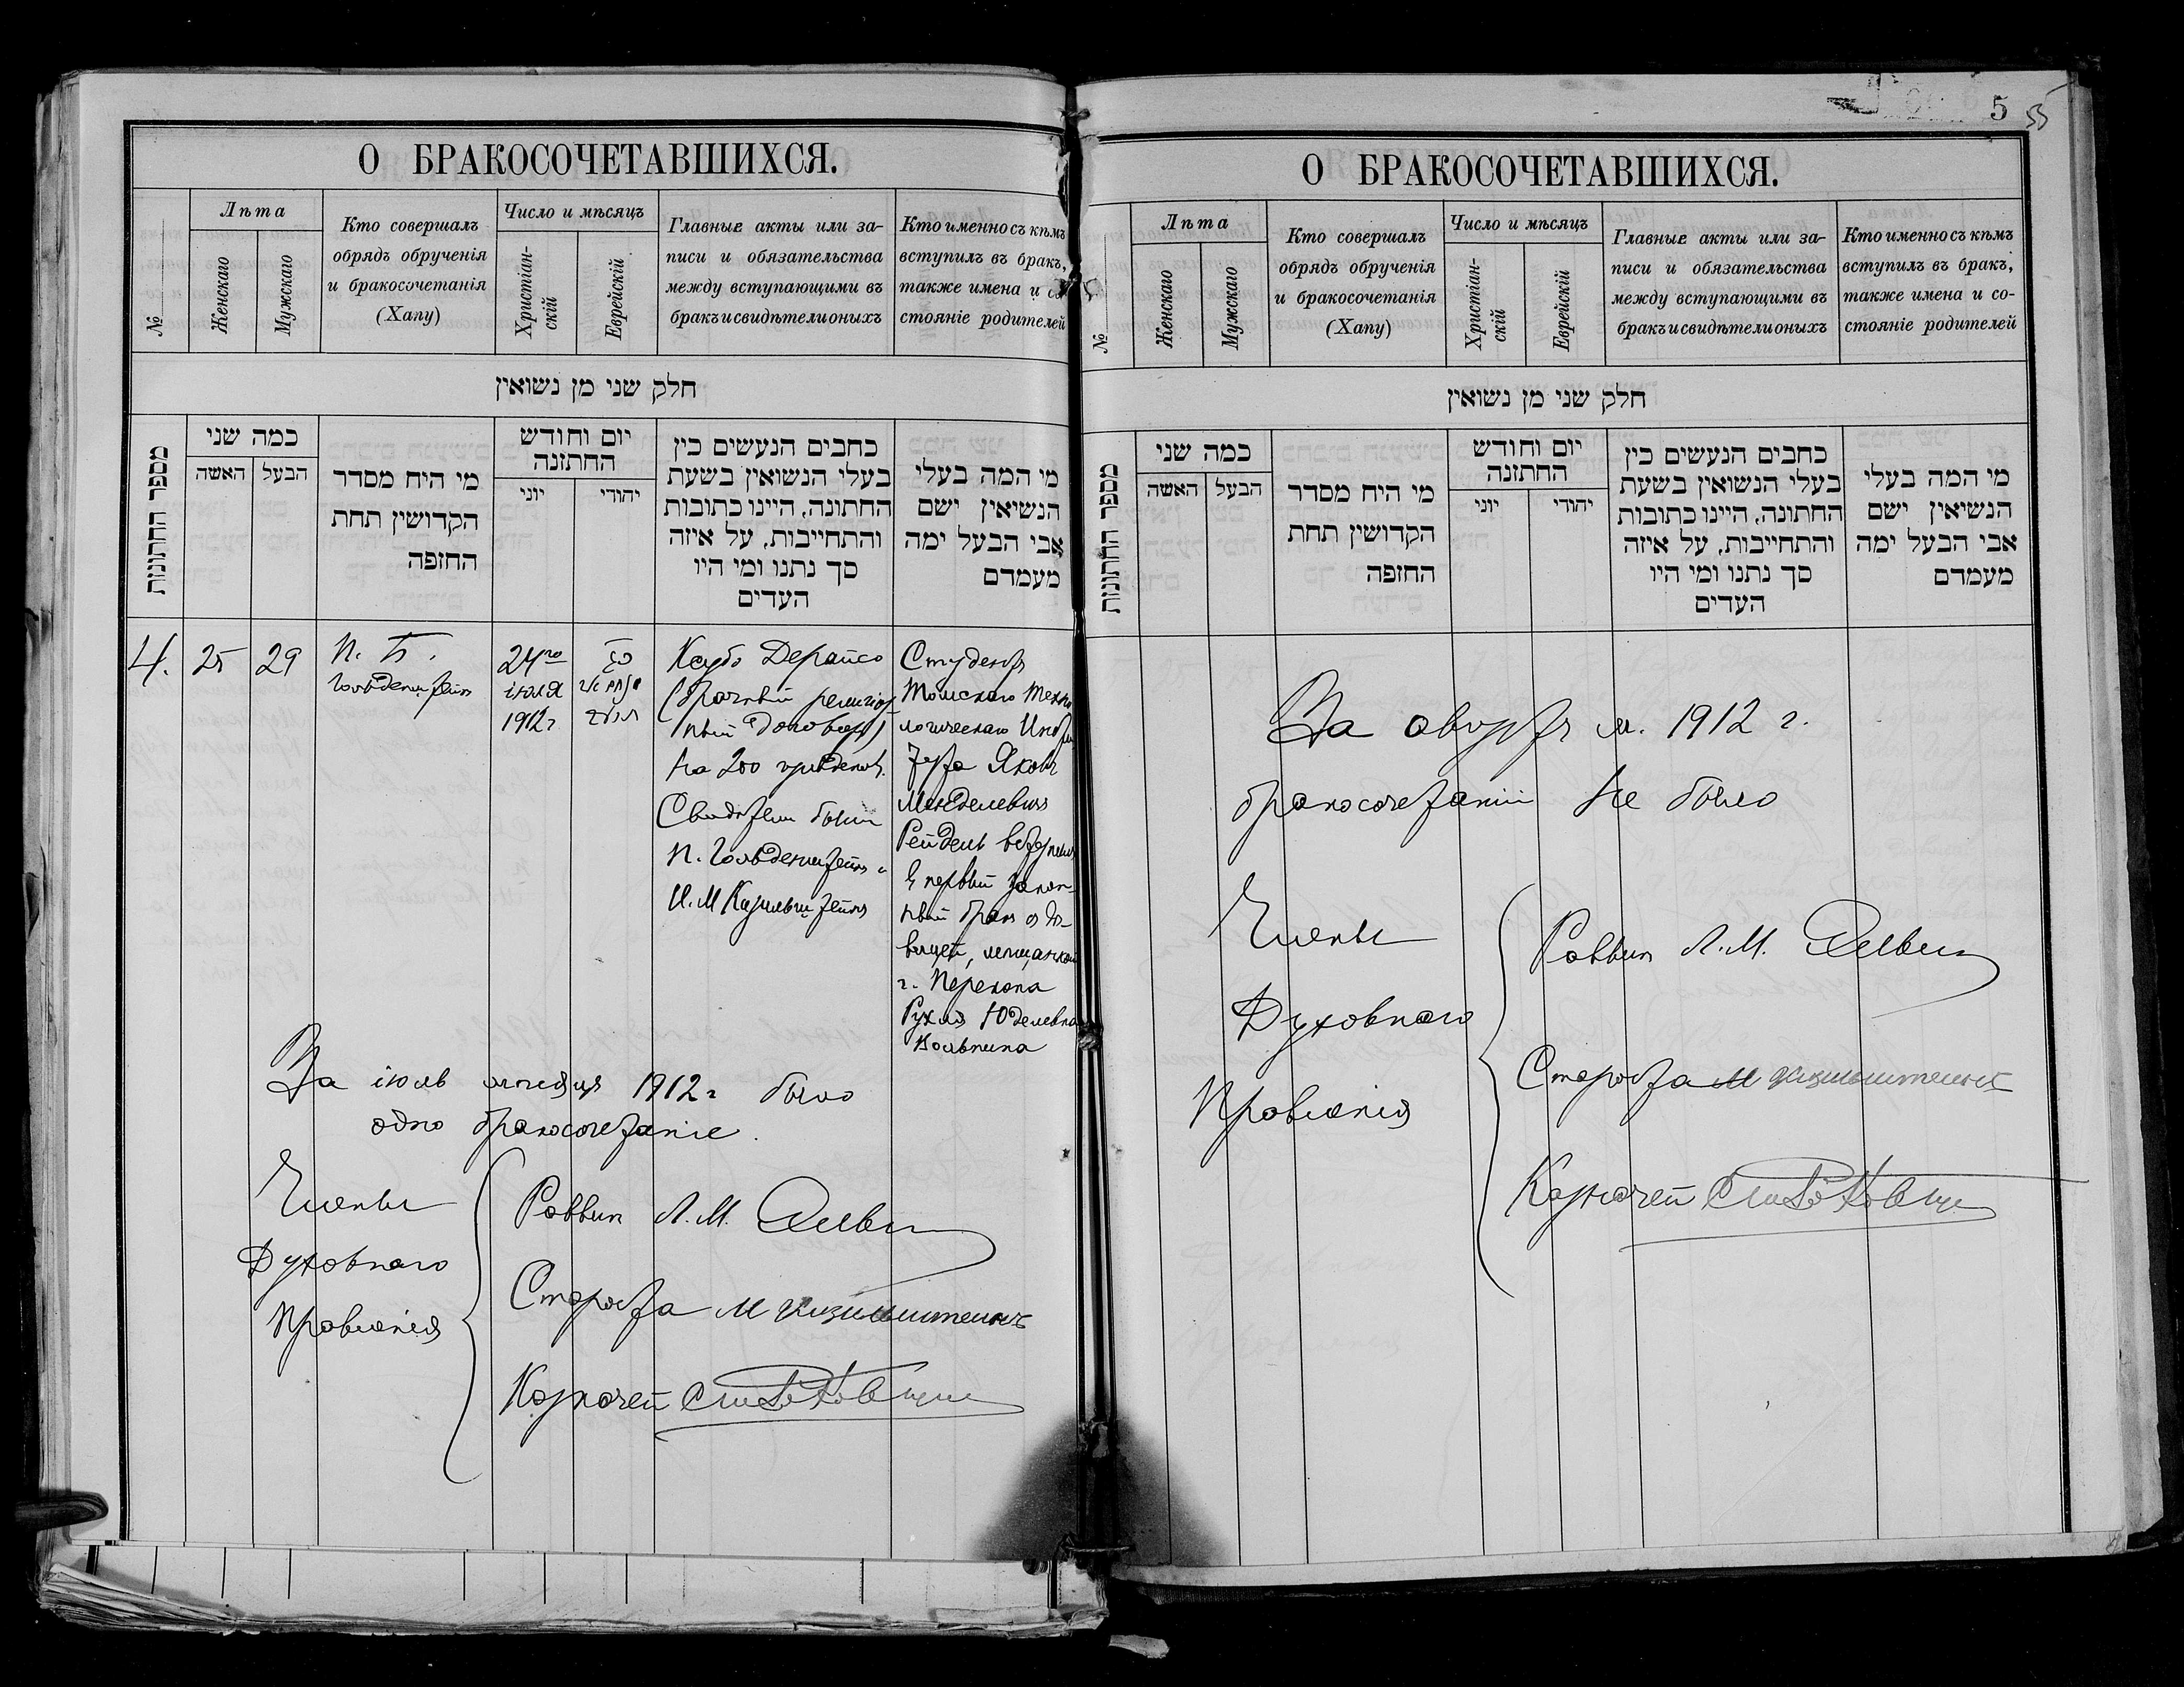 О БРАКОСОЧЕТАВШИХСЯ.
№
Лѣта
Женскаго
Мужскаго
Кто совершалъ
обрядъ обрученія
и бракосочетанія
(Хапу)
Число и мѣсяцъ
Христіан-
скій
Еврейскій
Главные акты или за-
писи и обязательства
между вступающими въ
бракъ и свидѣтели оныхъ
Кто именно съ кѣмъ
вступилъ въ бракъ,
также имена и со
стояніе родителей
חלק שני מן נשואין
מספר החתונות
כמה שני
האשה
הבעל
מי היח מסדר
הקדושין תחת
החזפה
יום וחודש
החתונה
יוני
יהודי
כחבים הנעשים כין
בעלי הנשואין בשעת
החתונה, היינו כתובות
והתחייבות, על איזה
סך נתנו ומי היו
העדים
מי המה בעלי
הנשיאין ישם
אבי הבעל ימה
מעמדם
4.
25
29
П. Б.
Гольденштейн
24го
іюля
1912г
Ксубо Дерайсо
(брачный религіоз
ный договоръ)
на 200 гульденов.
Свидѣтели были
П. Гольденштейнъ и
И. М Кизильштейнъ
Студентъ
Томскаго Техно
логическаго Инсти
тута Яковъ
Менделевичъ
Рейдель вступилъ
в первый закон-
ный бракъ съ дѣ-
вицей, мещанкой
г. Перекопа
Рухля Юделевна
Кольпина
За іюль мѣсяцъ 1912г было
одно бракосочетаніе.
Члены
Духовнаго
Правленія
Раввин Л. М.
Староста М Кизильштейнъ
Казначей
5
55
О БРАКОСОЧЕТАВШИХСЯ.
№
Лѣта
Женскаго
Мужскаго
Кто совершалъ
обрядъ обрученія
и бракосочетанія
(Хапу)
Число и мѣсяцъ
Христіан-
скій
Еврейскій
Главные акты или за-
писи и обязательства
между вступающими въ
бракъ и свидѣтели оныхъ
Кто именно съ кѣмъ
вступилъ въ бракъ,
также имена и со-
стояніе родителей
חלק שני מן נשואין
מספר החתונות
כמה שני
האשה
הבעל
מי היח מסדר
הקדושין תחת
החזפה
יום וחודש
החתונה
יוני
יהודי
כחבים הנעשים כין
בעלי הנשואין בשעת
החתונה, היינו כתובות
והתחייבות, על איזה
סך נתנו ומי היו
העדים
מי המה בעלי
הנשיאין ישם
אבי הבעל ימה
מעמדם
За августъ м. 1912 г.
бракосочетаній не было
Члены
Духовнаго
Правленія
Раввин Л. М.
Староста М Кизильштейнъ
Казначей